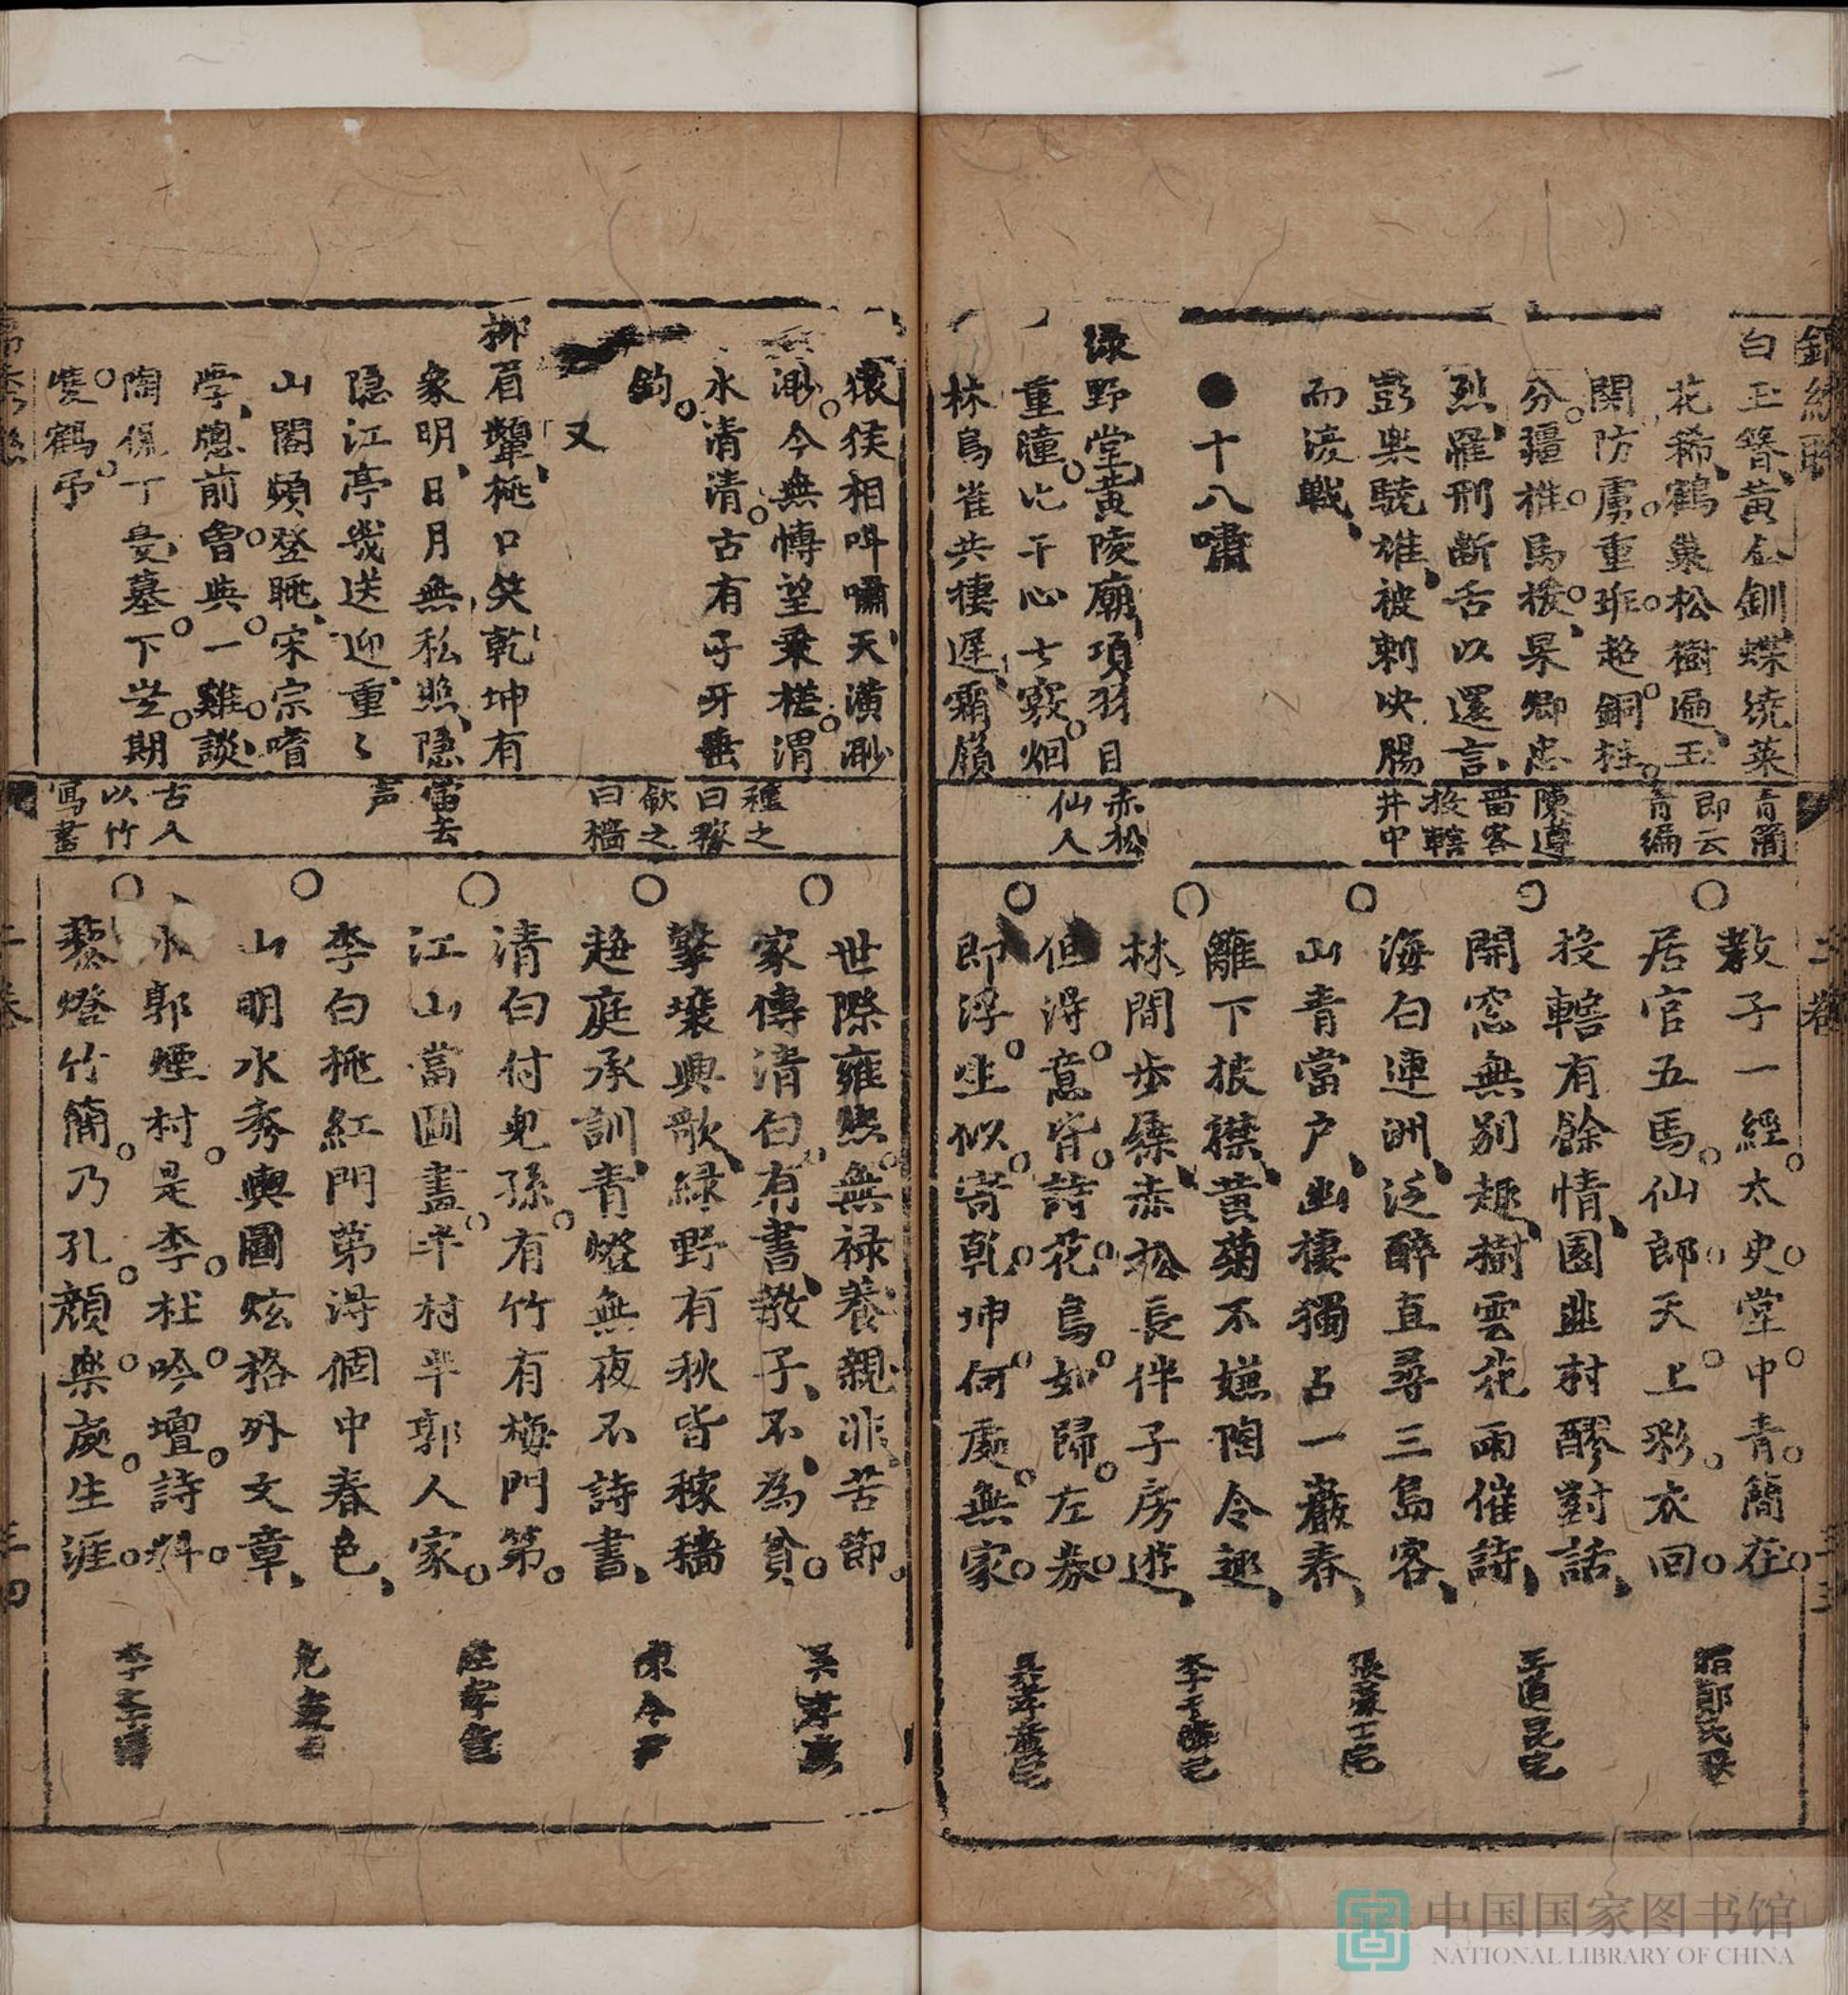 白玉簪黃金釧蝶繞菜
花稀鶴巢松樹遍玉
関防虜重班超銅柱
分疆椎馬援杲卿忠
烈羅刑斷舌以還言
彭樂驍雄被刺决腸
而涭戦
●十八嘯
渌野堂黃陵廟項羽目
重瞳比干心七竅烟
林鳥雀共棲遲霜嶺
青簡
即云
青編
陳遵
畱客
投轄
井中
赤松
仙人
教子一經太史堂中青簡在
居官五馬仙郎天上彩衣回
投轄有餘情園韭村醪對話
開窓無別趣樹雲花雨催詩
海白連洲泛醉直尋三島客
山青當户幽棲獨占一巖春
籬下振襟黃菊不嫌陶令趣
林間步屧赤松長伴子房遊
但淂意皆詩花鳥如歸左券
即浮生似寄乹坤何處無家
王道昆宅
李于麟宅
猿猴相呌嘯天潢渺
渺今無愽望乗槎渭
水清清古有子牙垂
鈎
又
柳眉顰桃口笑乾坤有
象明日月無私照隐
隐江亭幾送迎重〻
山閣頻登眺宋宗嗜
學䆫前曾與一雞談
陶侃丁憂墓下岂期
䨇鶴吊
種之
曰稼
歛之
曰穡
當去
声
古人
以竹
寫書
世際雍熙無禄養親非苦節
家傳清白有書教子不為貧
擊壤興歌緑野有秋皆稼穡
趨庭承訓青燈無夜不詩書
清白付児孫有竹有梅門第
江山當圖畫半村半郭人家
李白桃紅門第淂個中春色
山明水秀輿圖炫格外文章
水郭煙村是李杜吟壇詩料
藜燈竹簡乃孔顔樂䖏生涯
中国国家图书馆
NATIONAL LIBRARY OF CHINA